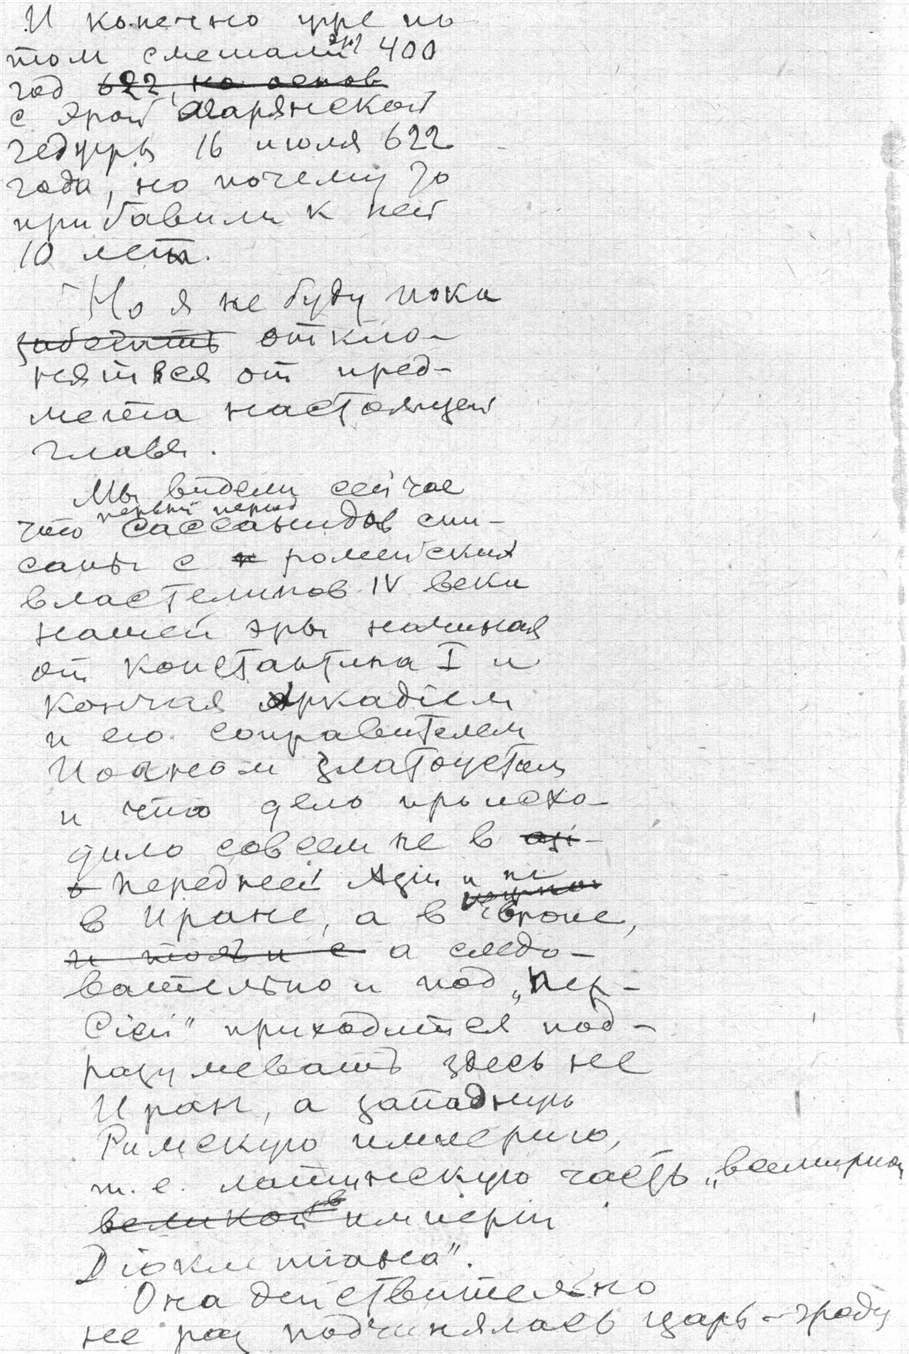 И конечно уже по
том смешали этот 400
год 622, на основ
с эрой Агарянской
геджры 16 июля 622
года, но почему то
прибавили к ней
10 лет.
Но я не буду пока
отклo-
няться от пред-
мета настоящей
главы.
Мы видели сейчас
что первый период Сассанидов спи-
саны с ромейских
властелинов IV века
нашей эры начиная
от Константина I и
кончая Аркадiем
и его соправителем
Иоаном Златоустом
и что дело происхо-
дило совсем не в азi-
в передней Азiи и не
в Иране, а в Европе,
а следо-
вательно и под „Пер-
сiей" приходится под-
разумевать здесь не
Иран, а западную
Римскую империю,
т.е. латинскую часть „всемирной
великой имперiи
Дiоклетiана".
Она действительно
не раз подчинялась царь-граду